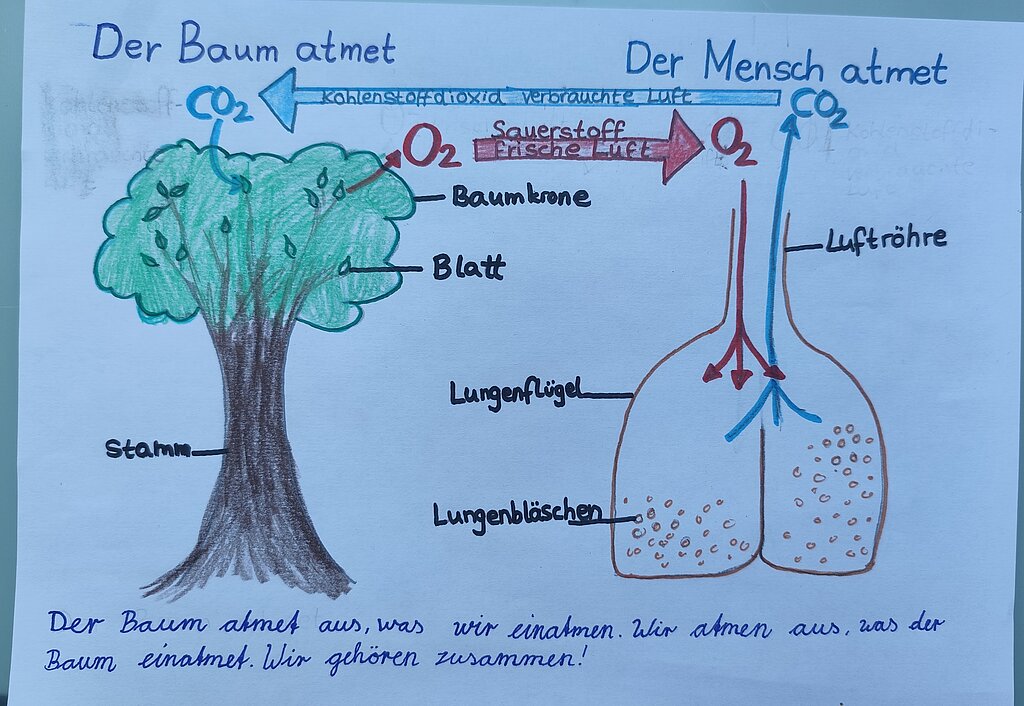 Der Baum atmet
Der Mensch atmet
CO2
Kohlenstoffdioxid verbrauchte Luft
CO2
O2
Sauerstoff
frische Luft
O2
Baumkrone
Blatt
Luftröhre
Lungenflügel
Stamm
Lungenbläschen
Der Baum atmet aus, was wir einatmen. Wir atmen aus, was der
Baum einatmet. Wir gehören zusammen!